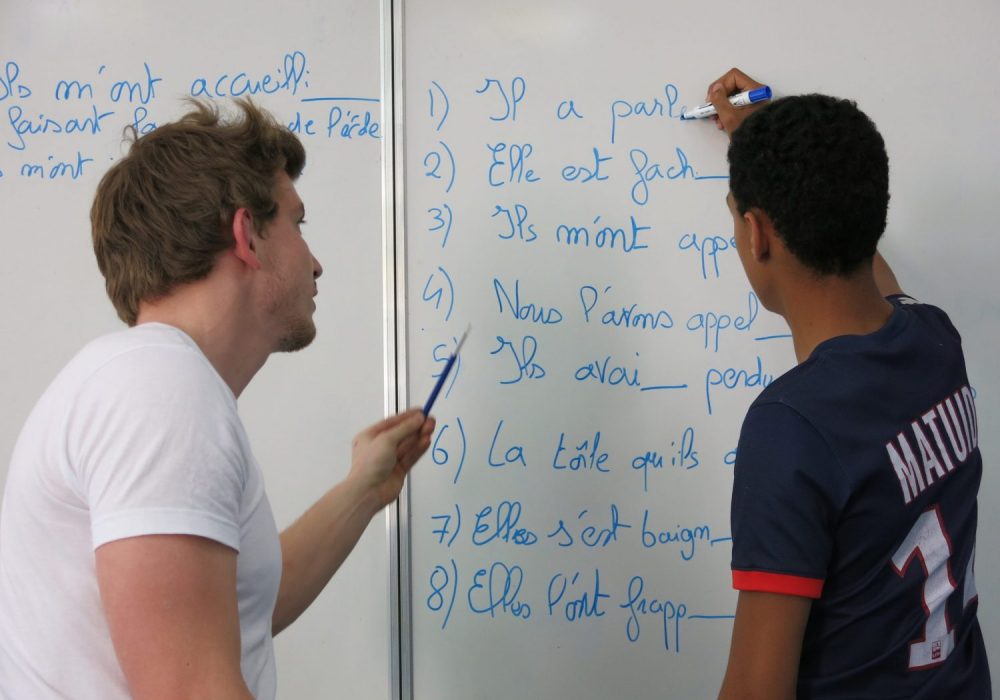 Ils m'ont accueilli
faisant de l'aide
m'ont
1) Il a parl
2) Elle est fach__
3) Ils m'ont appe
4) Nous l'avons appel__
5) Ils avai__ perdu
6) La toile qu'ils
7) Elles s'est baign__
8) Elles l'ont frapp__
MATUID
1